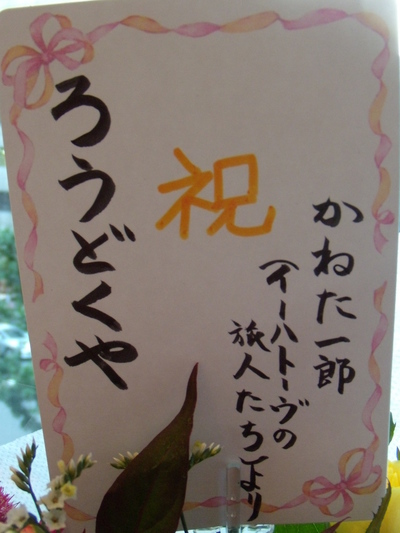 祝
かねた一郎
(イーハトーヴの
旅人たち)より
ろうどくや